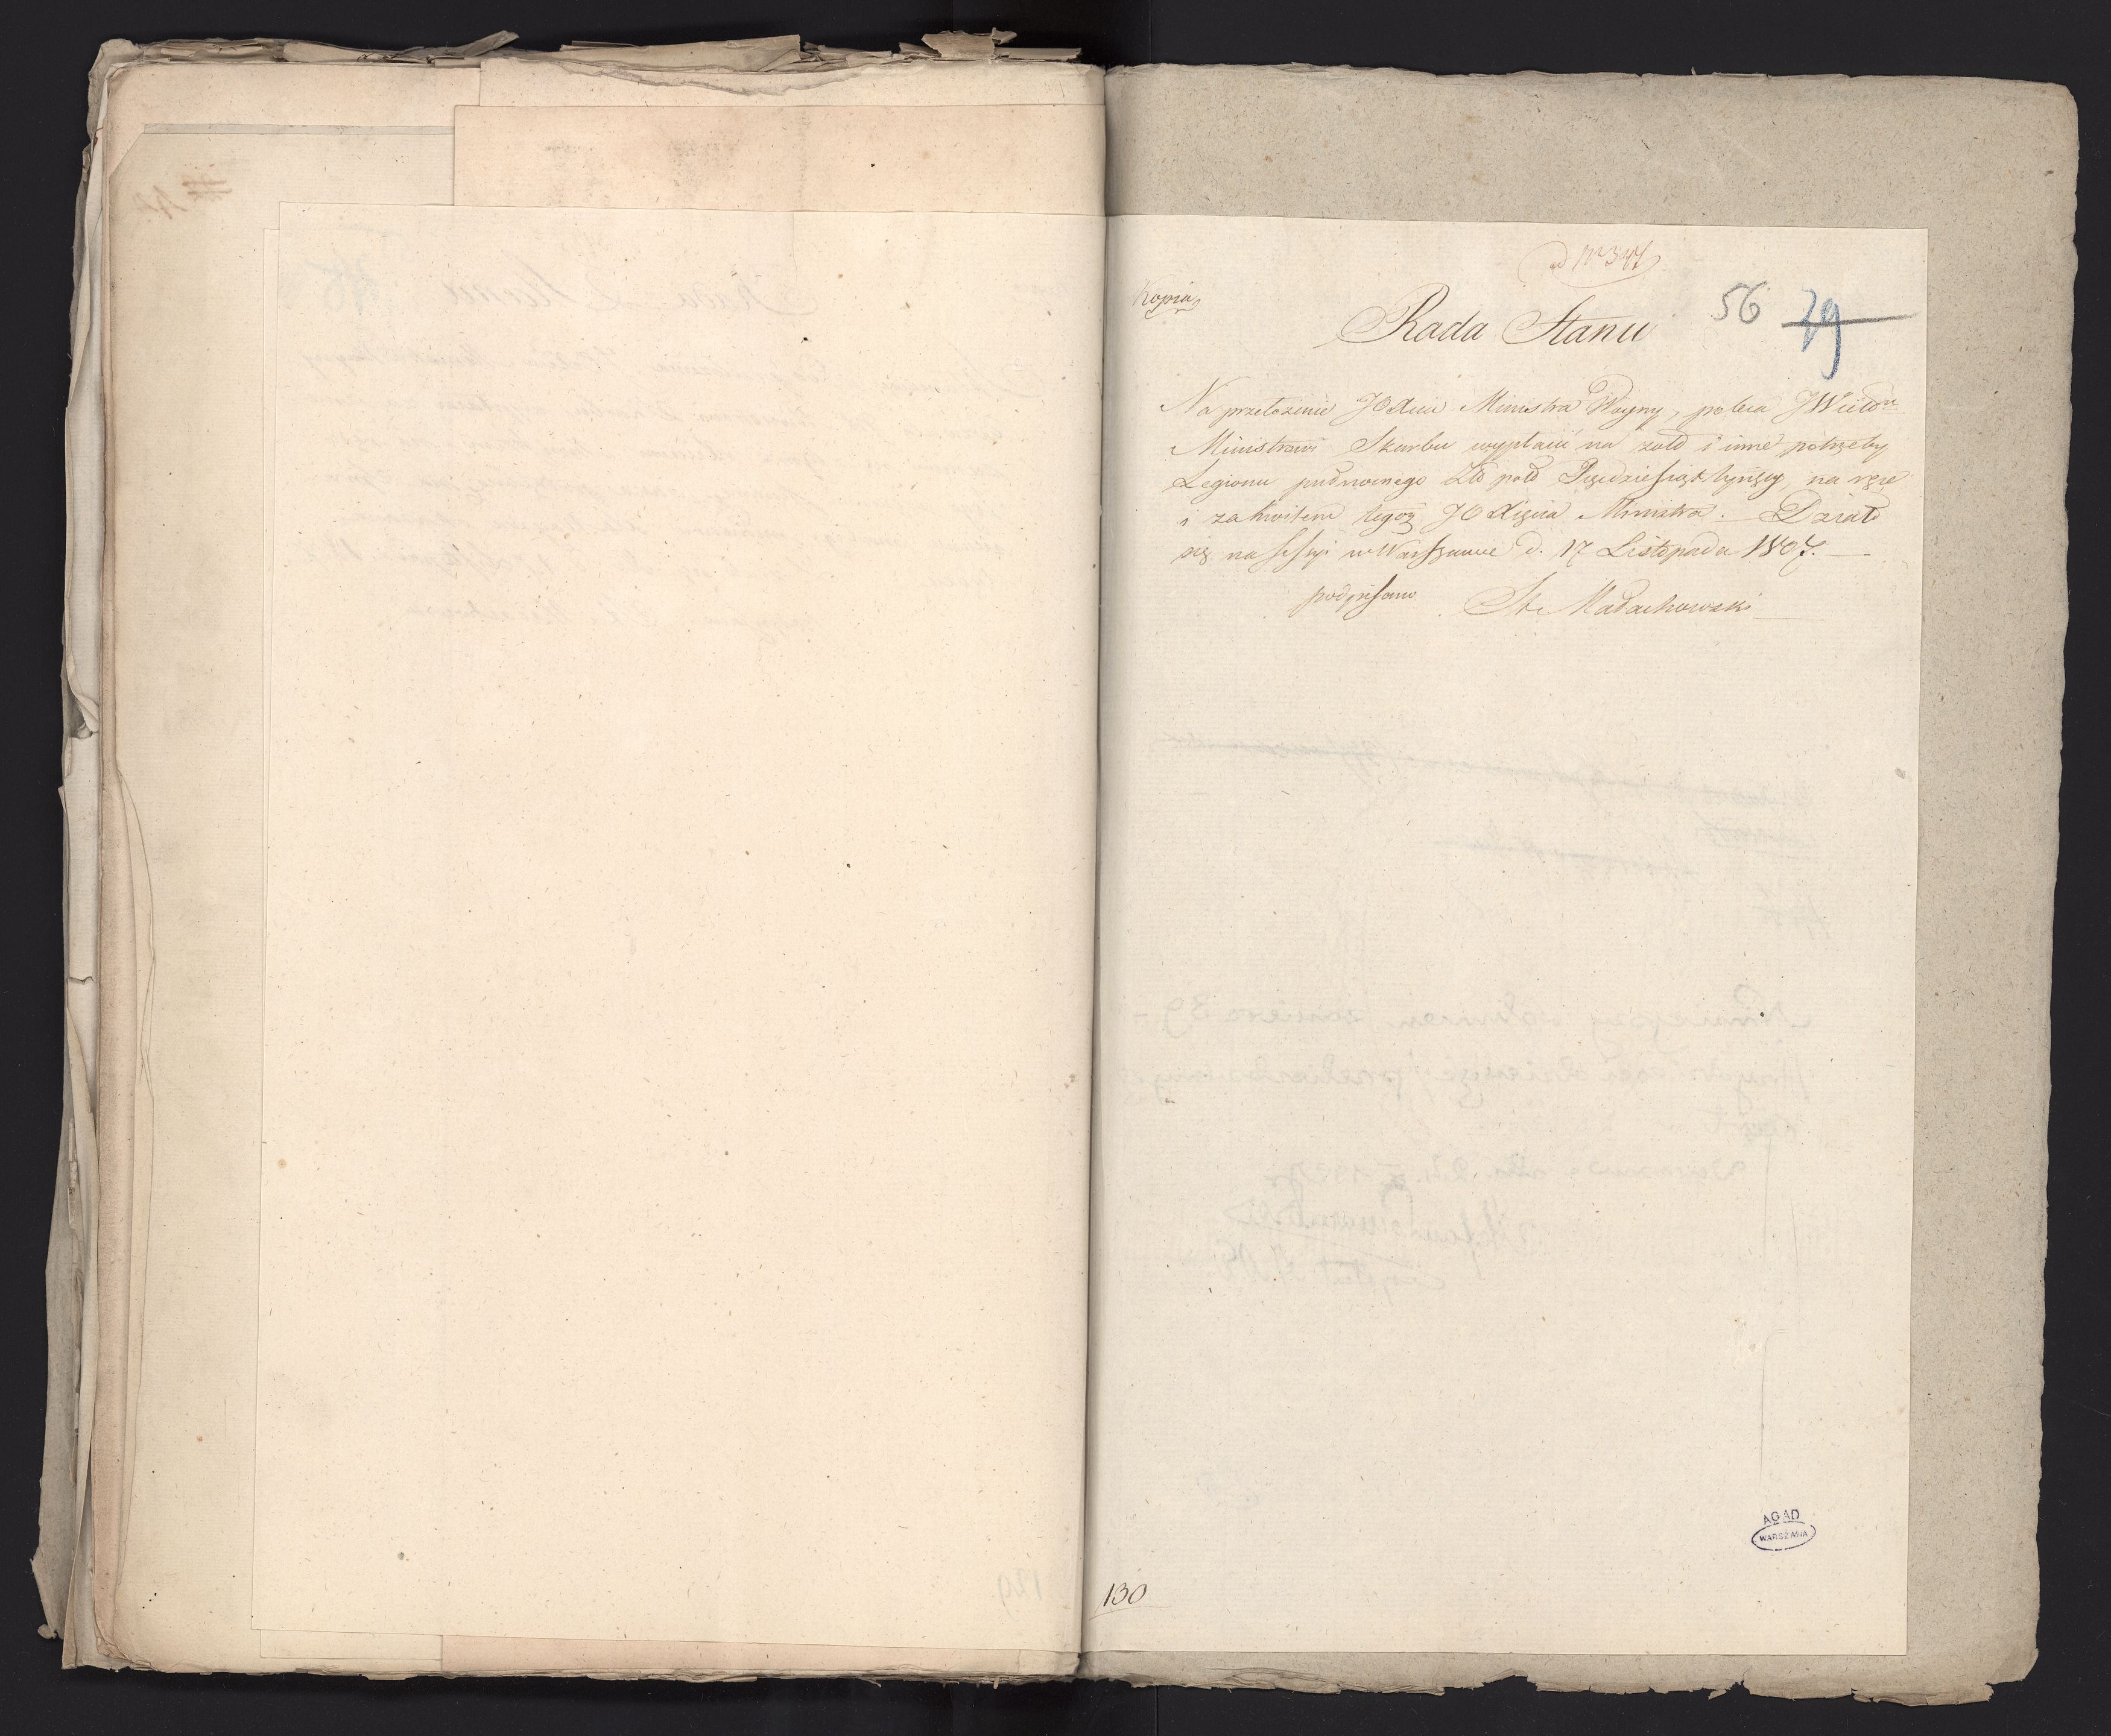 ad N 347
Kopia
Rada Stanu
56 79
Na przełożenie JO Xcia Ministra Woyny, poleca JW
Ministrowi Skarbu wypłacić na żołd i inne potrzeby
Legionu Złł pold Pięćdziesiąt tysięcy, na ręce
i za kwitem tegoż JO Xięcia Ministra. Działo
się na Sessyi w Warszawie d. 17 Listopada 1807.
podpisano St. Małachowski
AGAD
WARSZAWA
130